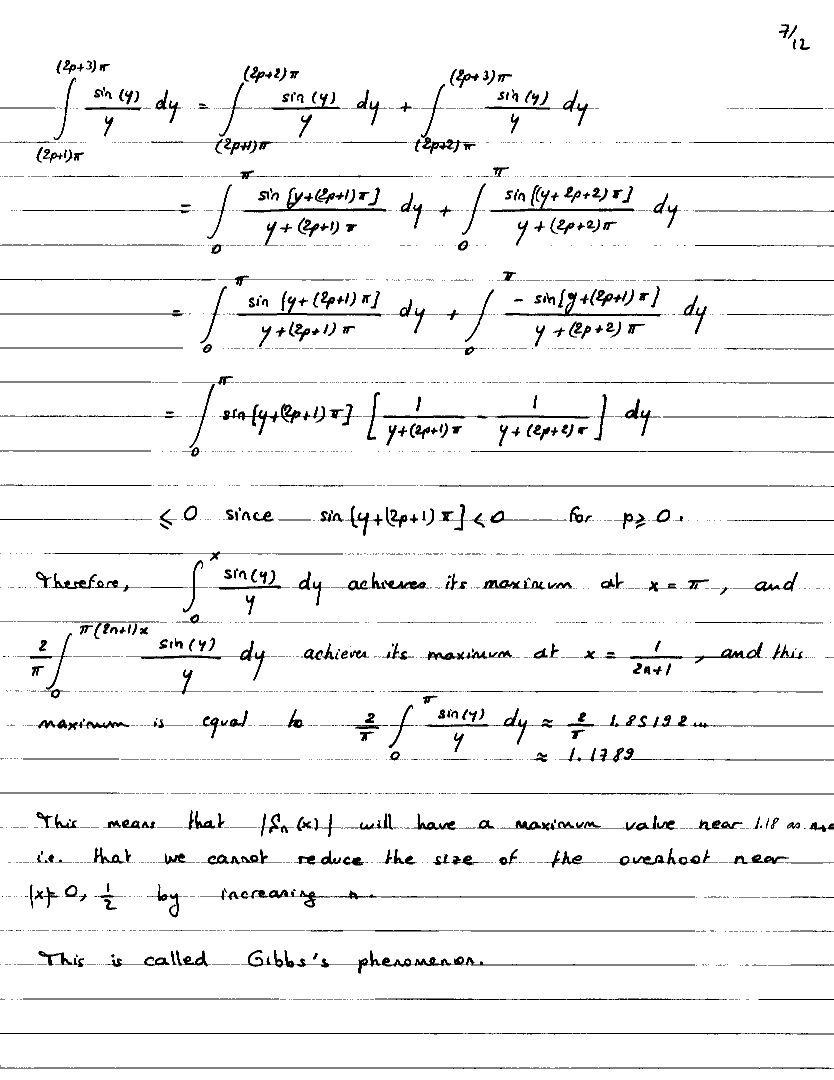 7/12
∫_{(2p+1)π}^{(2p+3)π} sin(y)/y dy = ∫_{(2p+1)π}^{(2p+2)π} sin(y)/y dy + ∫_{(2p+2)π}^{(2p+3)π} sin(y)/y dy
= ∫_0^π sin[y+(2p+1)π]/(y+(2p+1)π) dy + ∫_0^π sin[(y+2p+2)π]/(y+(2p+2)π) dy
= ∫_0^π sin[y+(2p+1)π]/(y+(2p+1)π) dy + ∫_0^π -sin[y+(2p+1)π]/(y+(2p+2)π) dy
= ∫_0^π sin[y+(2p+1)π] [1/(y+(2p+1)π) - 1/(y+(2p+2)π)] dy
≤ 0 since sin[y+(2p+1)π] < 0 for p ≥ 0.
Therefore, ∫_0^x sin(y)/y dy achieves its maximum at x = π, and
2/π ∫_0^{π(2n+1)x} sin(y)/y dy achieves its maximum at x = 1/(2n+1), and this
maximum is equal to 2/π ∫_0^π sin(y)/y dy ≈ 2/π 1.85192...
≈ 1.1789
This means that |Sn(x)| will have a maximum value near 1.18 as
i.e. that we cannot reduce the size of the overhoot near
|x|= 0, 1/2 by increasing n.
This is called Gibbs's phenomenon.